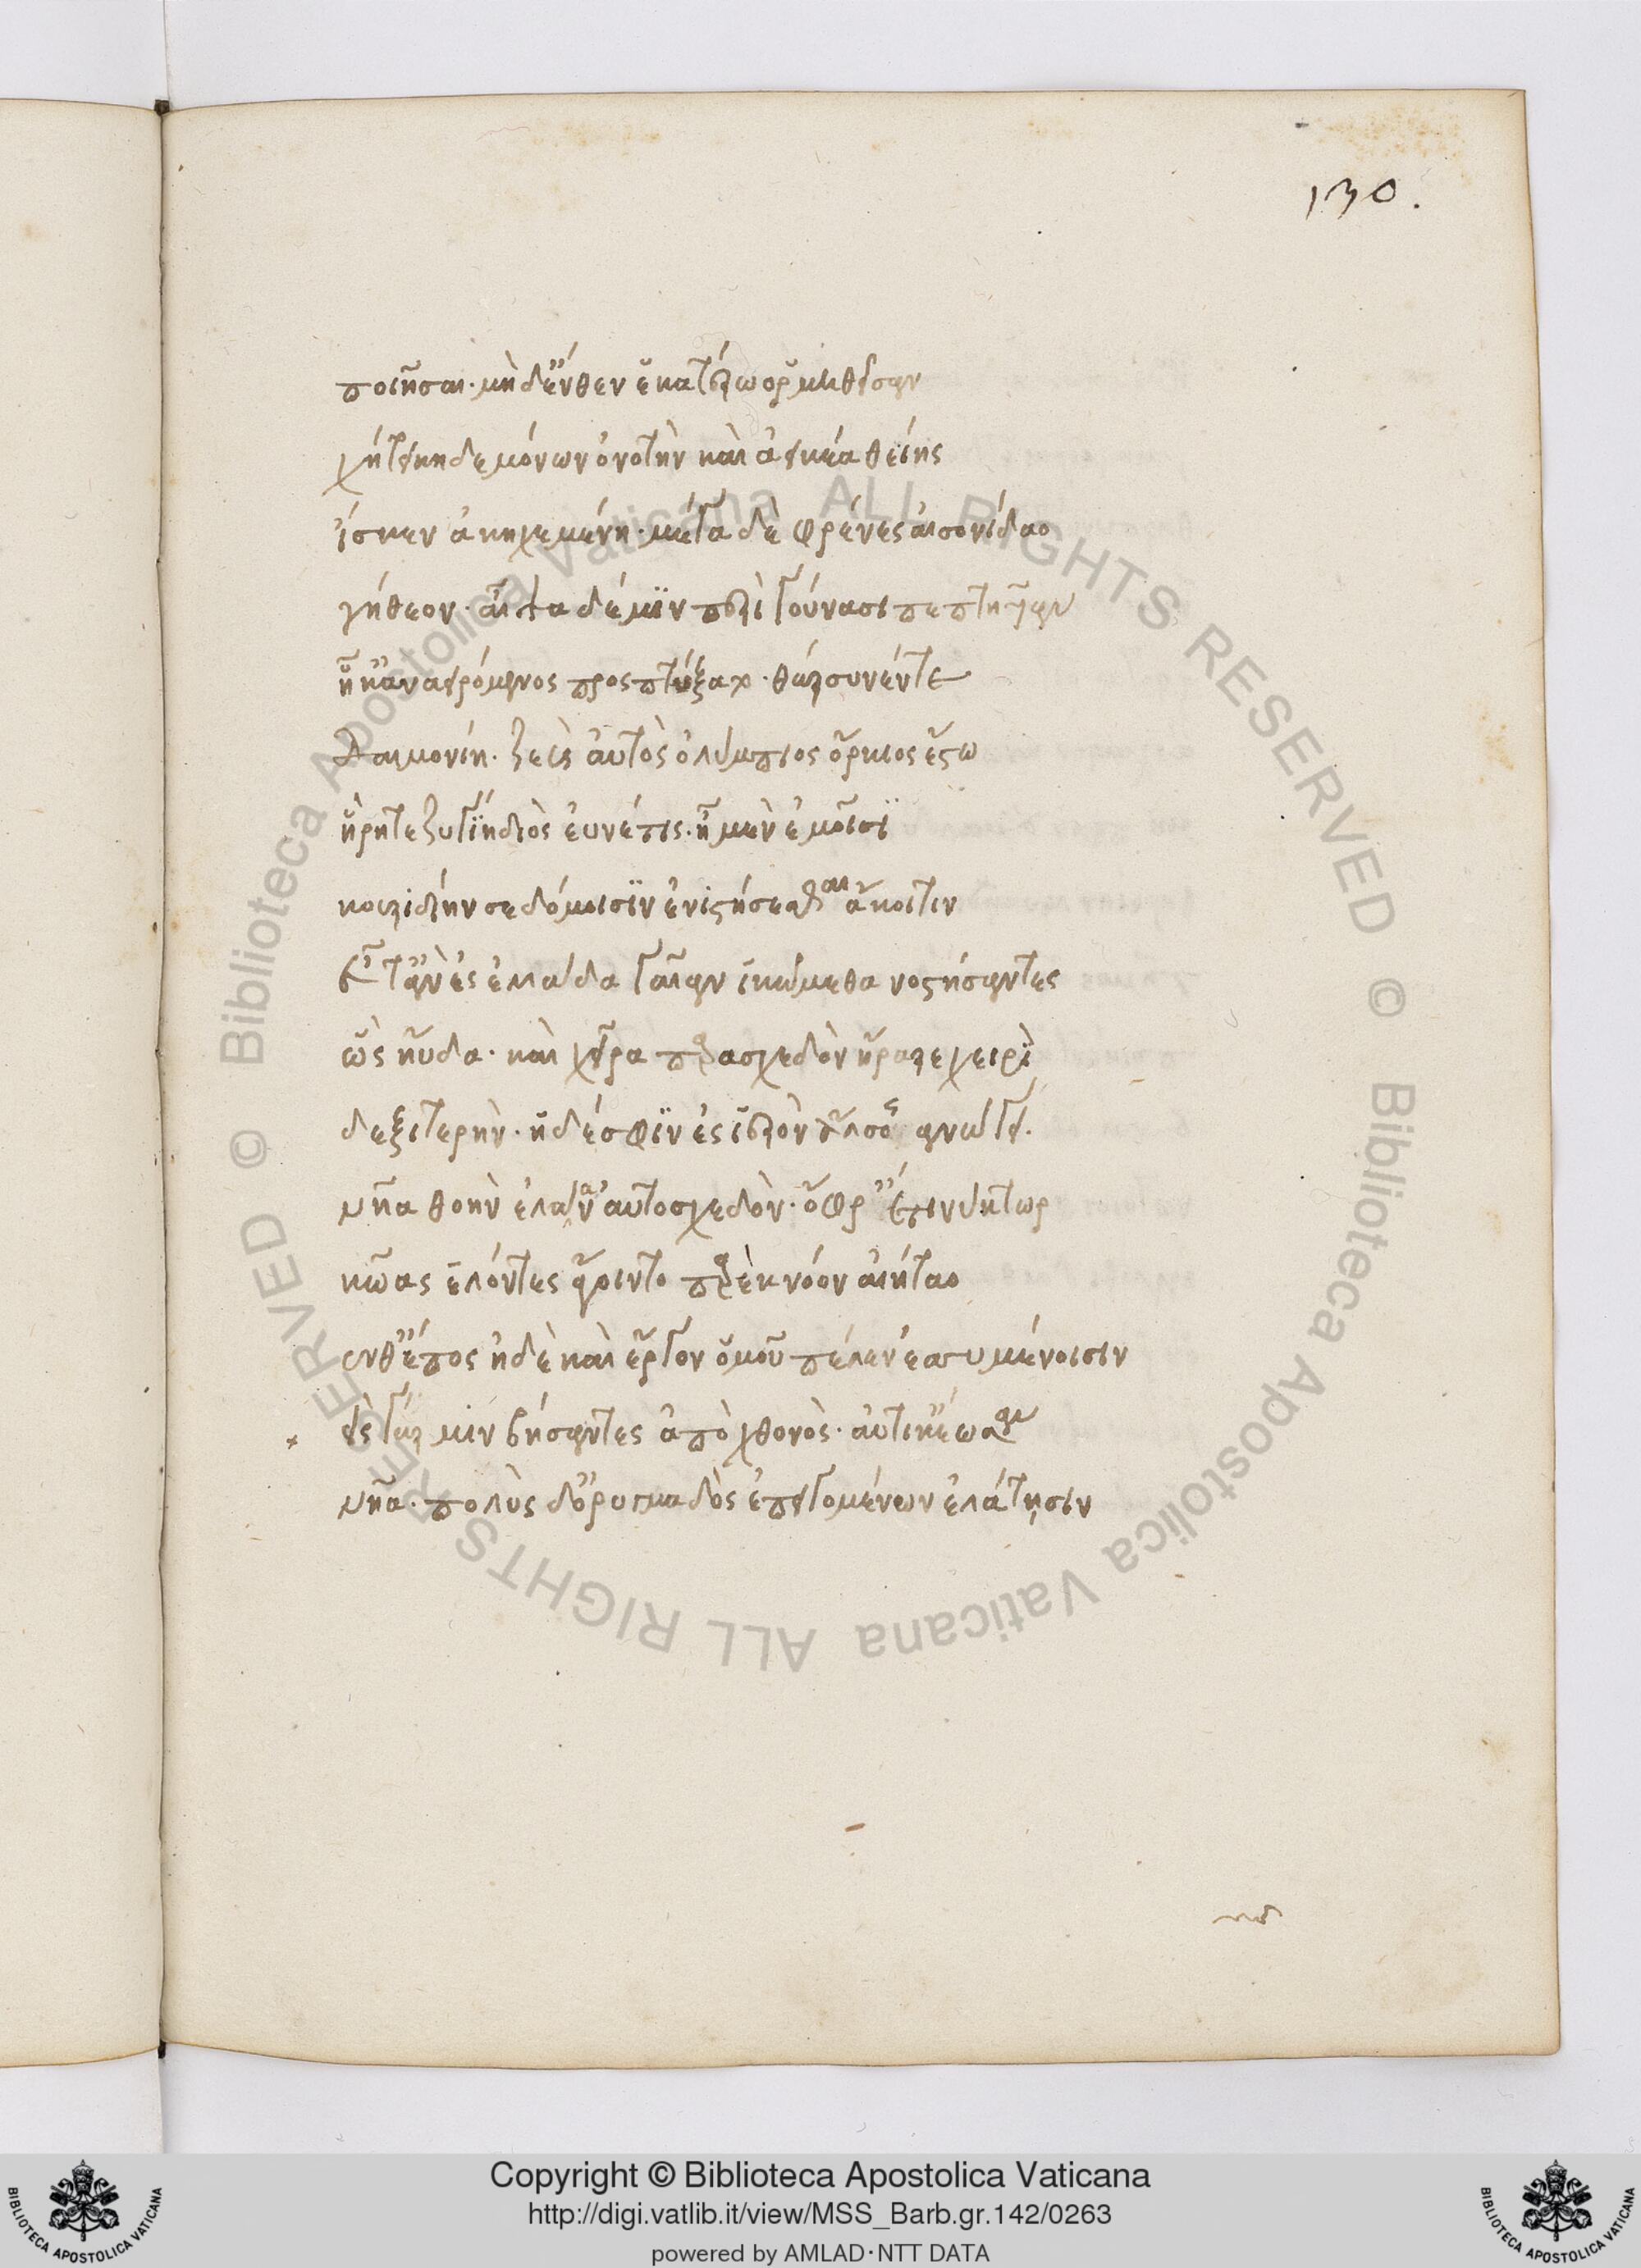 130.
ποιῆσαι. μὴ δ' ἔνθεν ἑκαστέρω ὁρμηθεῖσαν
χήτει κηδεμόνων ὀνοτὴν καὶ ἀεικέα θείης
ἴσκεν ἀκηχεμένη. μέγα δὲ φρένες αἰσονίδαο
γήθεον. αἶψα δέ μϊν περὶ γούνασι πεπτηυῖαν
ἦκ' ἀναειρόμενος προσπτύξατο. θάρσυνέν τε
Δαιμονίη. ζεὺς ἀυτὸς ὀλύμπιος ὅρκιος ἔστω
ἥρη τε ζυγΐη διὸς ἐυνέτις. ἦ μὲν ἐμοῖσϊ
κουριδίην σε δόμοισϊν ἐνιστήσεσθαι ἄκοιτιν
Εὖτ' ἂν ἐς ἑλλάδα γαῖαν ἱκώμεθα νοστήσαντες
ὣς ηὔδα. καὶ χεῖρα παρασχεδὸν ἤραρε χειρῒ
δεξιτερήν. ἡ δέ σφϊν ἐς ἱερὸν ἄλσος ἀνώγει.
νῆα θοὴν ἐλάαν αὐτοσχεδόν. ὄφρ' ἔτι νύκτωρ
κῶας ἑλόντες ἄγοιντο παρὲκ νόον αἰήταο
ἔνθ' ἔπος ἠδὲ καὶ ἔργον ὁμοῦ πέλεν ἐσσυμένοισιν
εἰς γάρ μιν βήσαντες ἀπὸ χθονὸς. αὐτίκ' ἔωσαν
νῆα. πολὺς δ' ὀρυμαδὸς ἐπειγομένων ἐλάτῃσιν
Copyright © Biblioteca Apostolica Vaticana
http://digi.vatlib.it/view/MSS_Barb.gr.142/0263
powered by AMLAD·NTT DATA
BIBLIOTECA APOSTOLICA VATICANA
BIBLIOTECA APOSTOLICA VATICANA
© Biblioteca Apostolica Vaticana ALL RIGHTS RESERVED
© Biblioteca Apostolica Vaticana ALL RIGHTS RESERVED